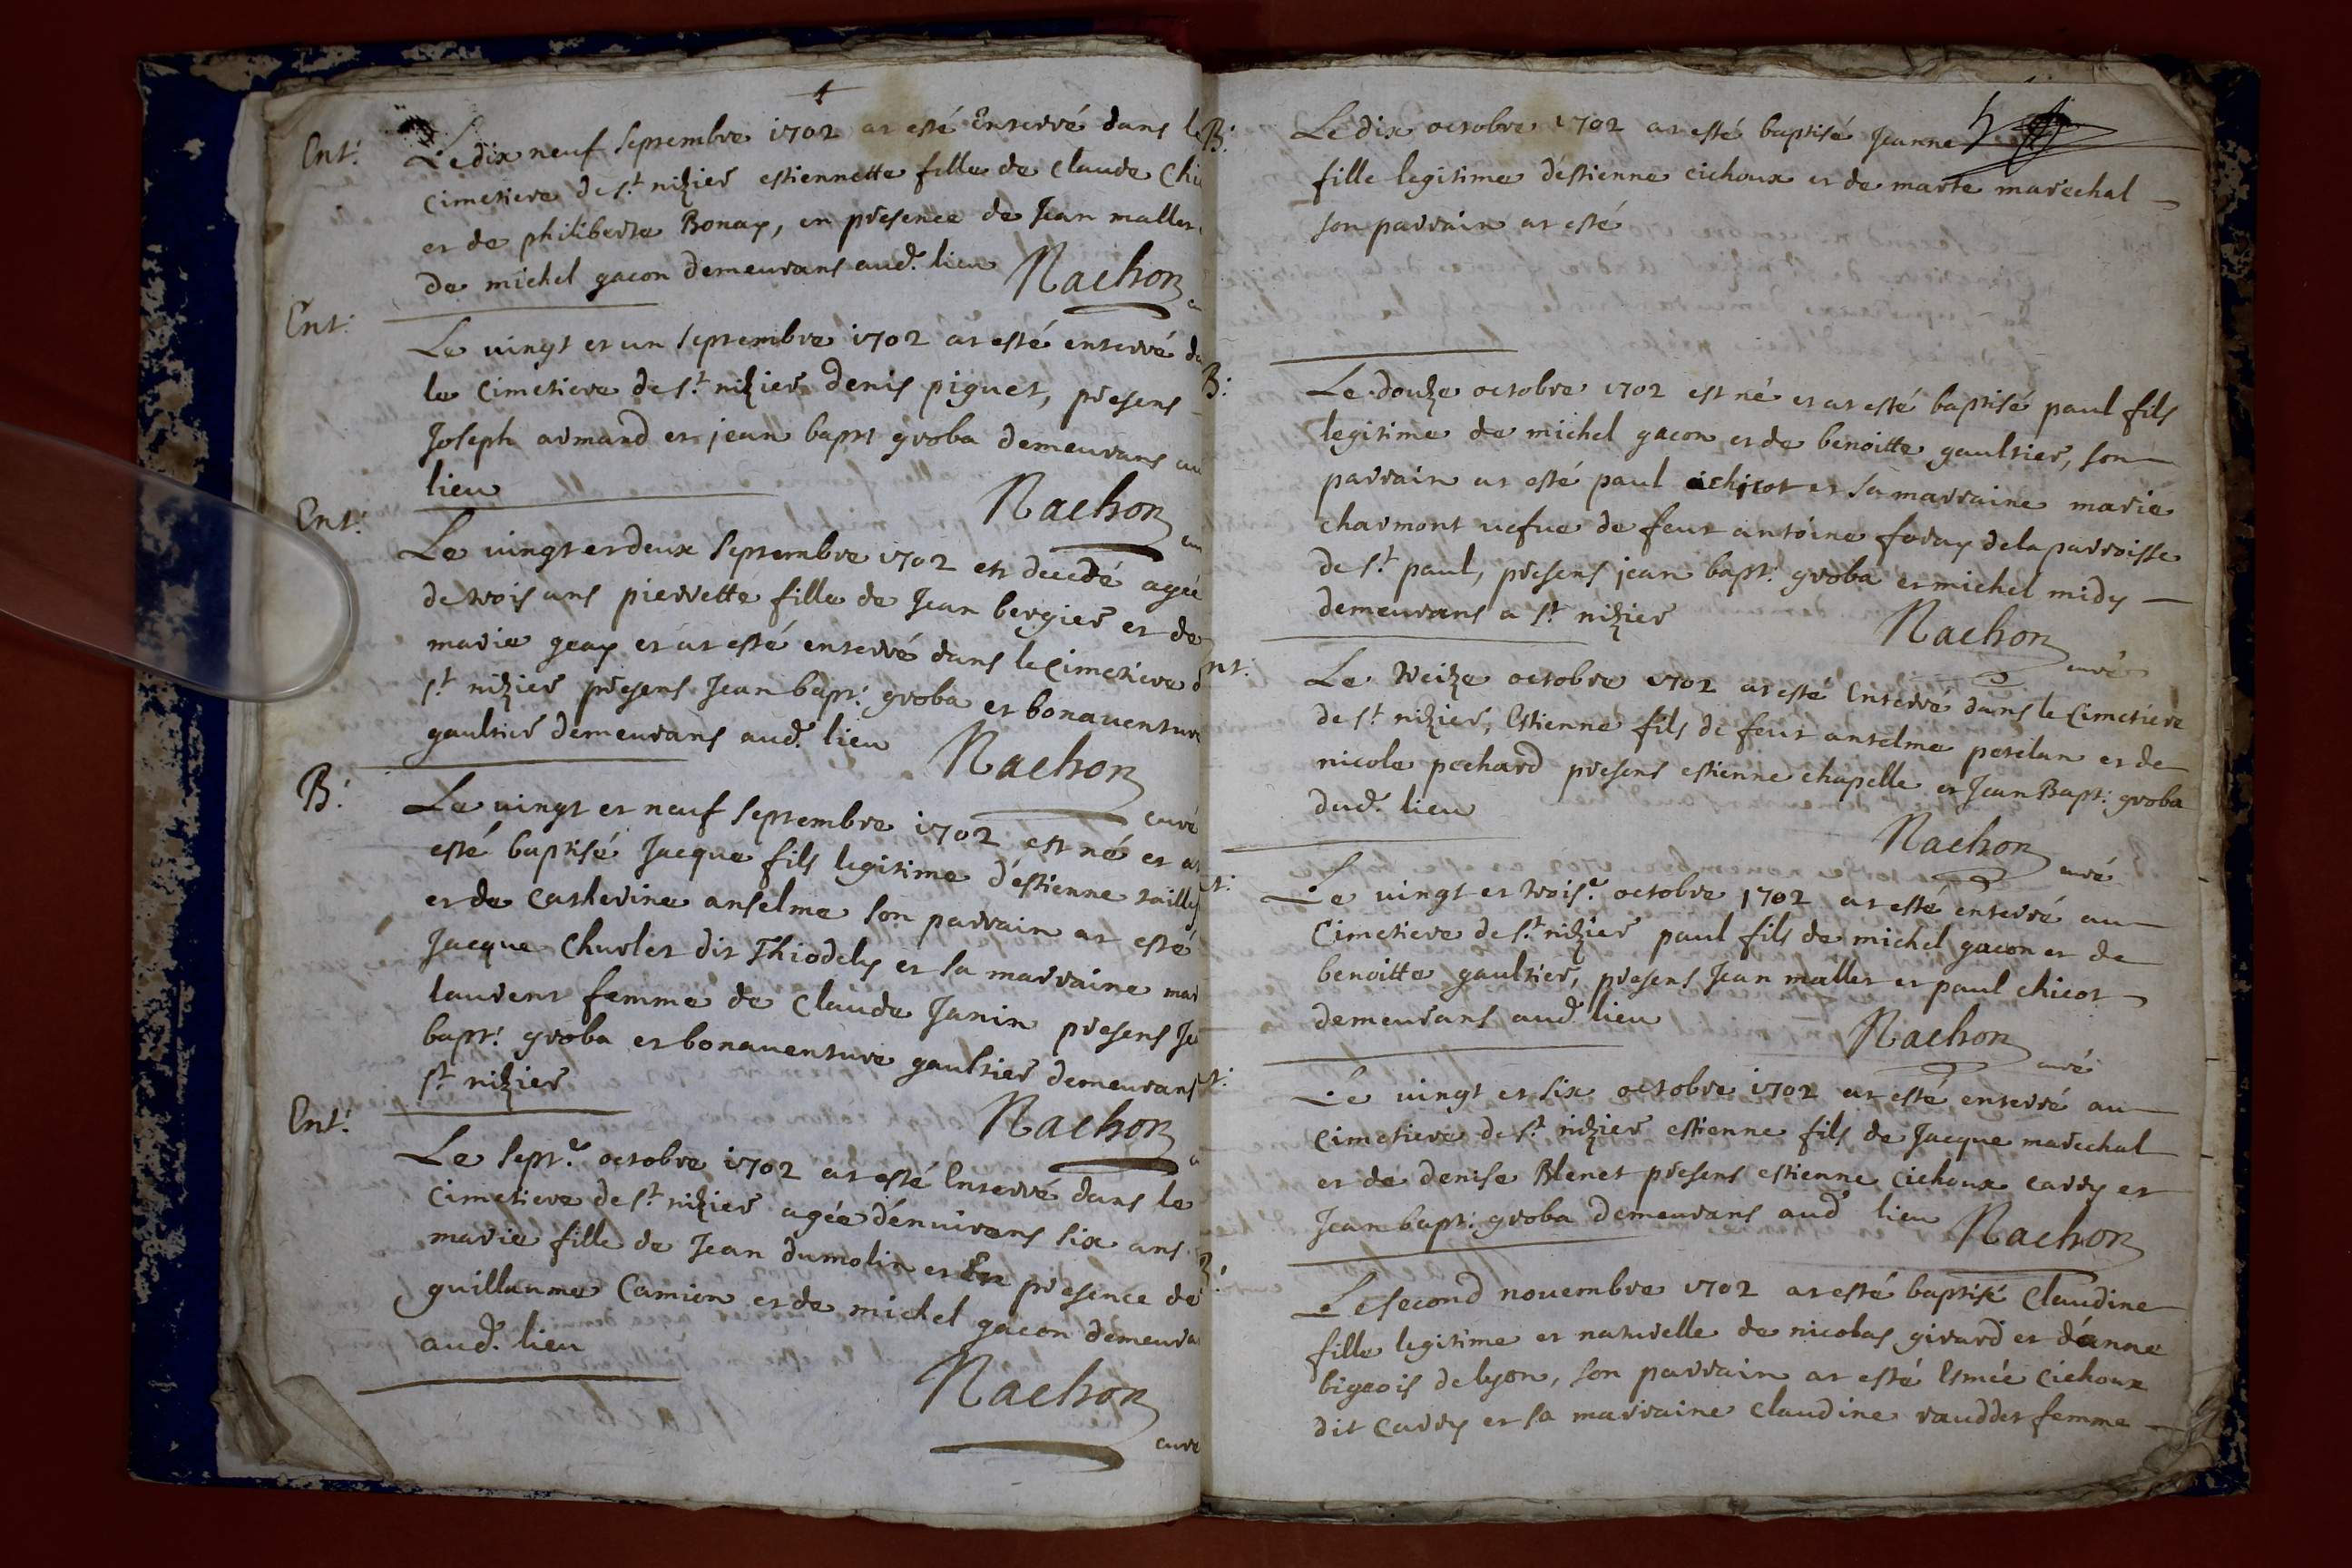 Ent: Le dix neuf Septembre 1702 at esté Enterré dans le
Cimetiere de s.t nizier estiennette fille de Claude
et de philiberte Bonay, en presence de Jean mallet
de michel gacon demeurans aud.t lieu Nachon
Ent: Le vingt et un septembre 1702 at esté enterré
le Cimetiere de s.t nizier denis piguet, presens
Joseph armand et jean bapt groba demeurans
lieu
Nachon
Ent: Le vingt et deux Septembre 1702 est decedé agée
de trois ans pierrette fille de Jean bergier et de
marie geay et at esté enterré dans le Cimetiere
s.t nizier presens Jean bapt: groba et bonaventure
gaultier demeurans aud.t lieu Nachon
curé
B: Le vingt et neuf Septembre 1702 est né et at
esté baptisé Jacque fils legitime d'estienne
et de Catherine anselme son parrain at esté
Jacque Charlet dit Thiodely et sa marraine
laurent femme de Claude Janin presens
bapt: groba et bonaventure gaultier demeurans
s.t nizier
Nachon
Ent: Le Sept.e octobre 1702 at esté Enterré dans le
Cimetiere de s.t nizier agée d'environs six ans
marie fille de Jean dumolin et En presence de
guillaume Camion et de michel gacon
aud.t lieu
Nachon
curé
B: Le dix octobre 1702 at esté baptisé Jeanne
fille legitime d'estienne cichoux et de marte marechal
son parrain at esté
B: Le douze octobre 1702 est né et at esté baptisé paul fils
legitime de michel gacon et de benoitte gaultier, son
parrain at esté paul chicot et sa marraine marie
charmont vefve de feut antoine foray de la parroisse
de s.t paul, presens jean bapt: groba et michel midy
demeurans a s.t nizier
Nachon
curé
Le treize octobre 1702 at esté Enterré dans le Cimetiere
de s.t nizier, Estienne fils de feut anselme peselan et de
nicole pechard presens estienne chapelle et Jean Bapt: groba
dud.t lieu
Nachon
curé
Le vingt et trois.e octobre 1702 at esté enterré au
Cimetiere de s.t nizier paul fils de michel gacon et de
benoitte gaultier, presens Jean mallet et paul chicot
demeurans aud.t lieu
Nachon
curé
Le vingt et six octobre 1702 at esté enterré au
Cimetiere de s.t nizier estienne fils de Jacque marechal
et de denise Blenet presens estienne Cichoux carry et
Jean bapt: groba demeurans aud.t lieu Nachon
Le second novembre 1702 at esté baptisé Claudine
fille legitime et naturelle de nicolas girard et d'anne
bigeois de lyon, son parrain at esté Esmée Cichoux
dit Carry et sa marraine Claudine raudder femme